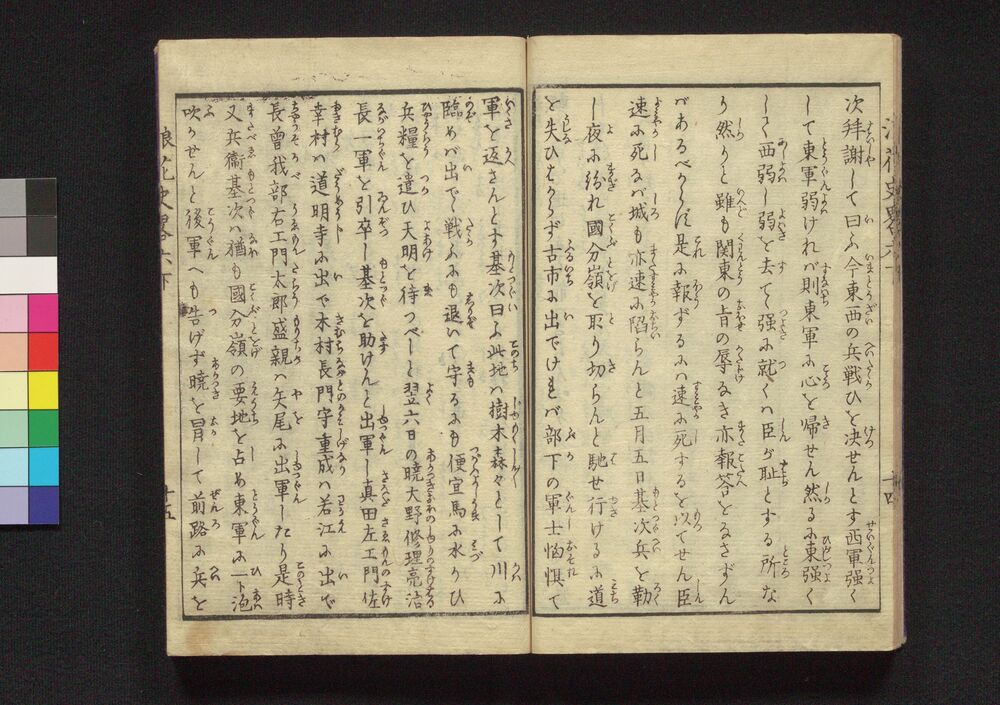 次拝謝して曰ふ今東西の兵戦ひを决せんとす西軍強く
して東軍弱ければ則東軍に心を帰せん然るに東強く
して西弱し弱を去て強に就くハ臣が耻とする所な
り然りと雖も関東の旨の辱なき亦報荅をなさずん
バあるべからず是に報ずるにハ速に死するを以てせん臣
速に死るバ城も亦速に陥らんと五月五日基次兵を勒
し夜に紛れ國分嶺を取り切らんと馳せ行けるに道
を失ひはからず古市に出でけれバ部下の軍士悩惧て
軍を返さんとす基次曰ふ此地ハ樹木森々として川に
臨めバ出でて戦ふにも退いて守るにも便宜馬に水かひ
兵糧を遣ひ天明を待つべしと翌六日の暁大野修理亮治
長一軍を引卒し基次を助けんと出軍し真田左エ門佐
幸村ハ道明寺に出で木村長門守重成ハ若江に出で
長曾我部右エ門太郎盛親ハ矢尾に出軍したり是時
又兵衞基次ハ猶も國分嶺の要地を占め東軍に一ト泡
吹かせんと後軍へも告げず暁を冒して前路に兵を
浪花史畧六下
十五
十四